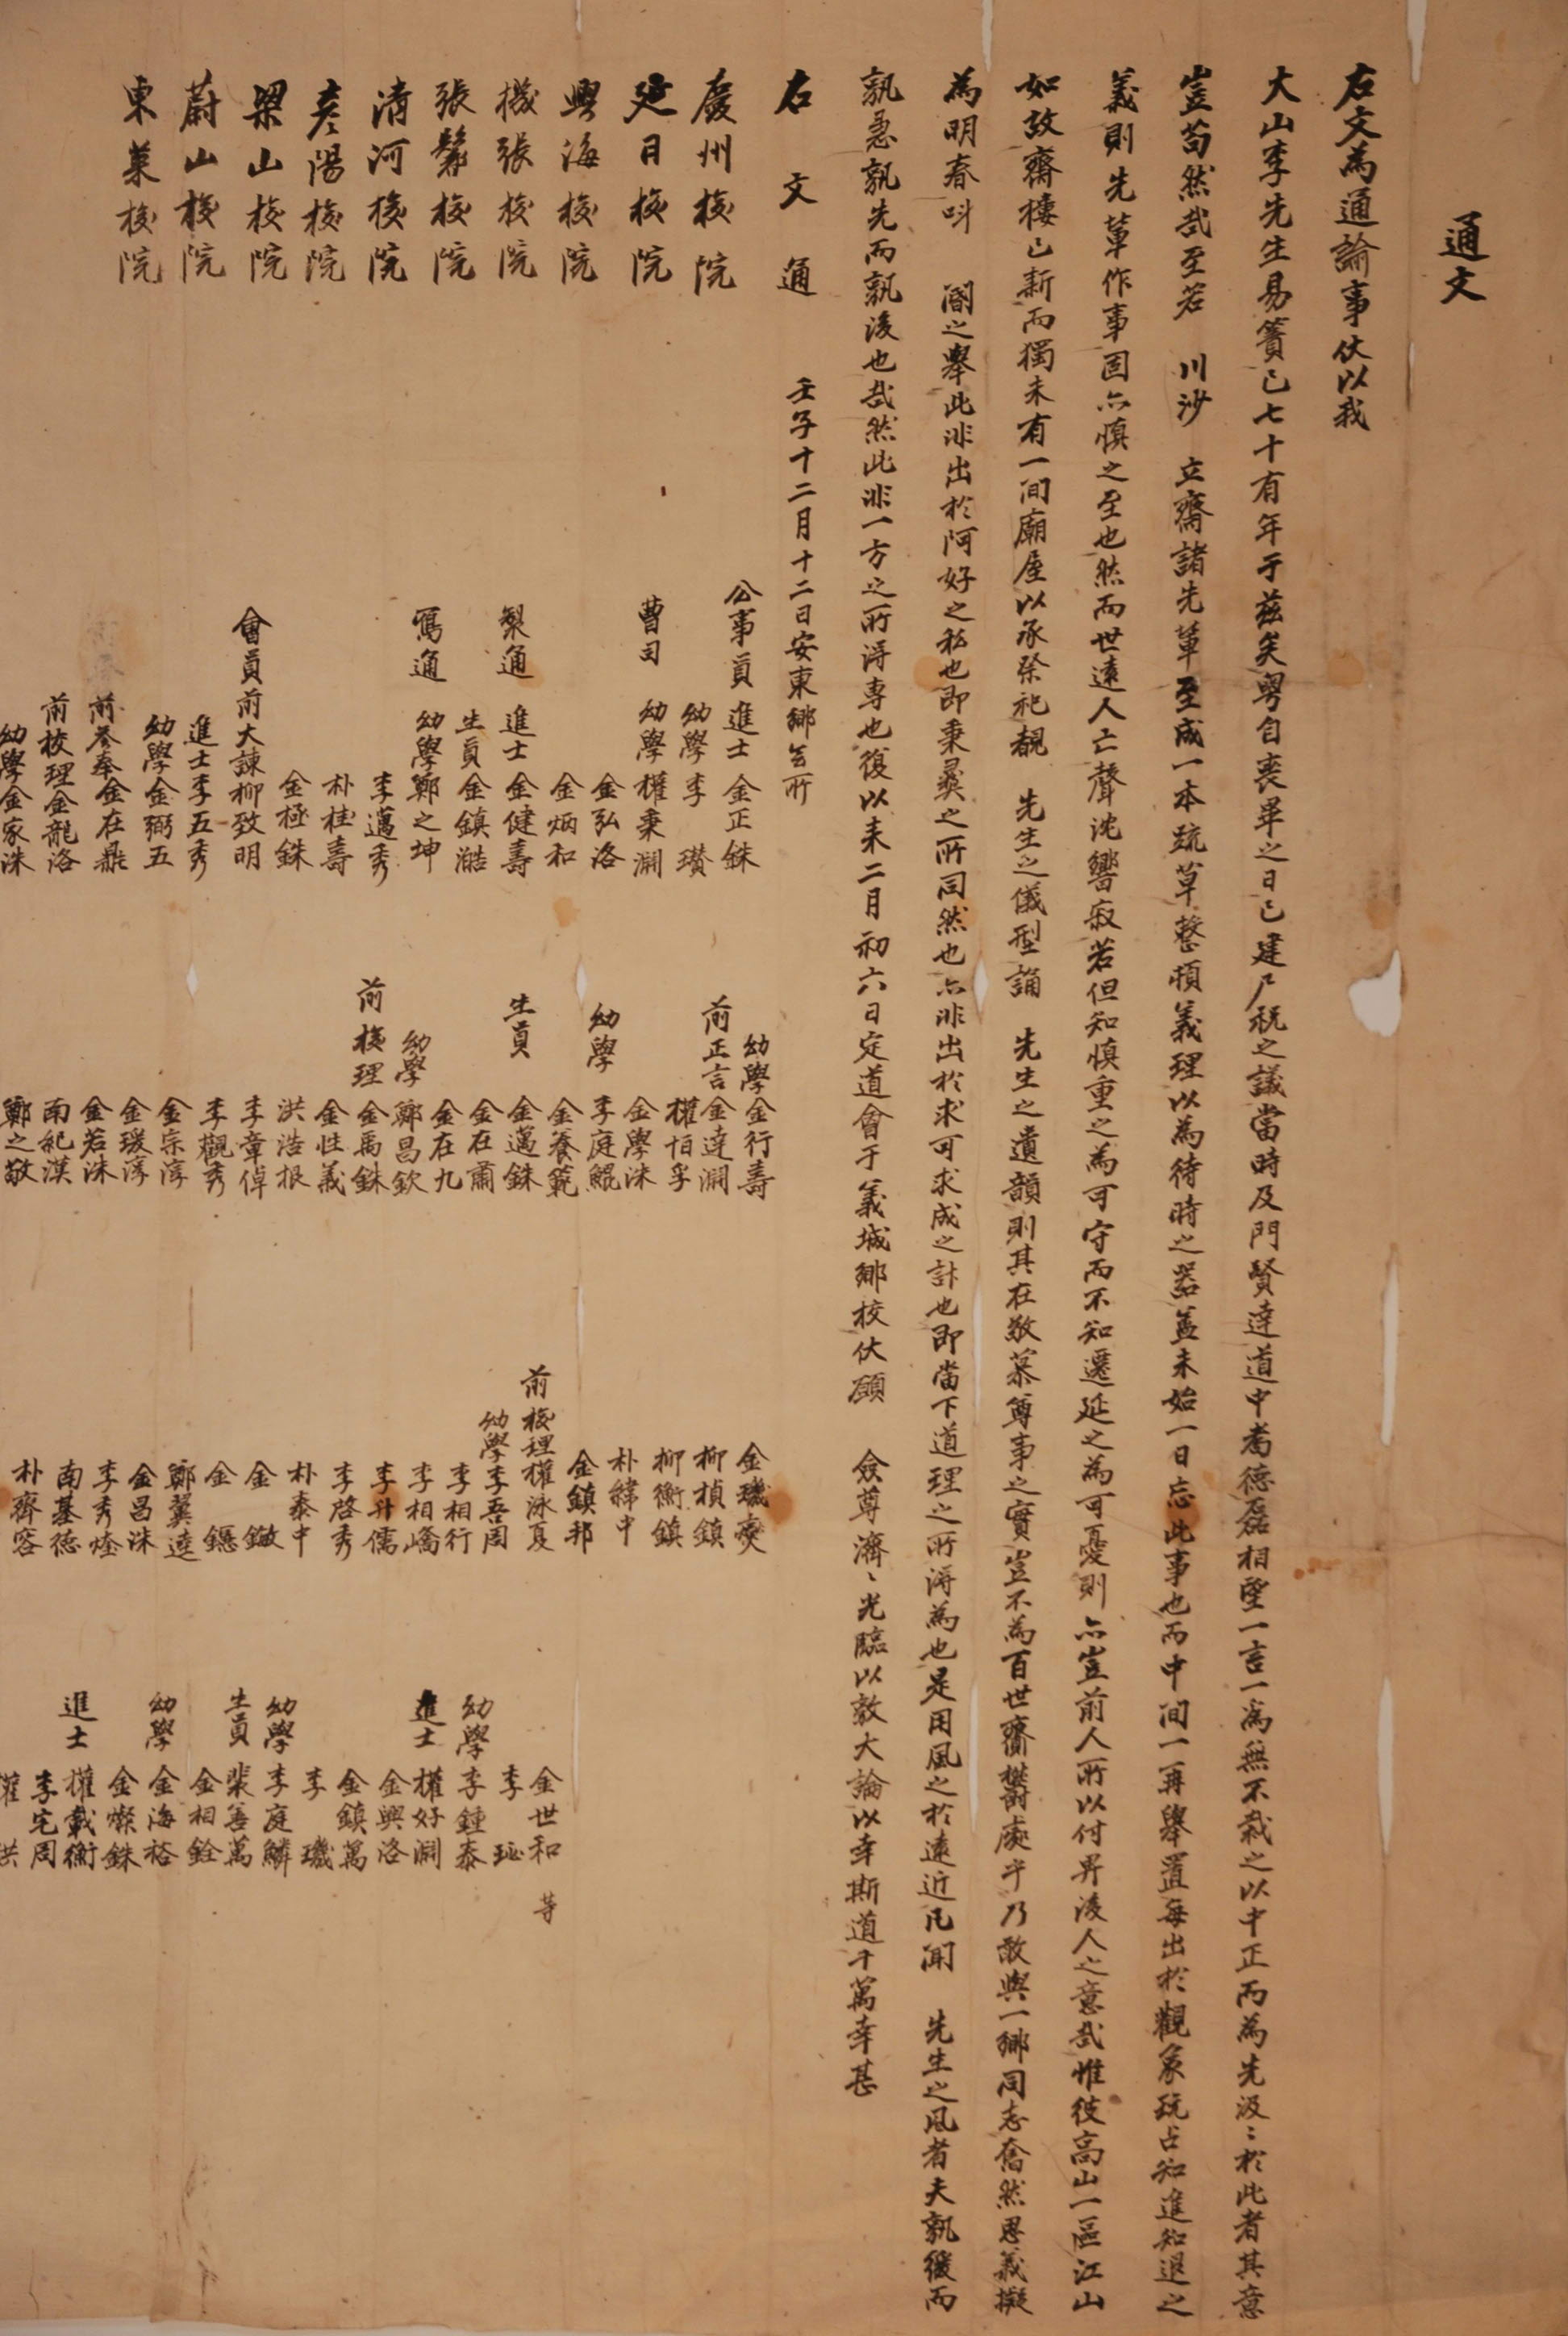 通文
右文爲通諭事伏以我
大山李先生易簀已七十有年于玆矣粤自喪畢之日已建尸祝之議當時及門賢達道中耆德磊相望一言一爲無不裁之以中正而爲先汲〻於此者其意
豈苟然哉至若 川沙 立齋諸先輩至成一本疏草整頓義理以爲待時之器盖未始一日忘此事也而中間一再擧置每出於觀象玩占知進知退之
義則先輩作事固亦愼之至也然而世遠人亡聲沈響寂若但知愼重之爲可守而不知遷延之爲可憂則亦豈前人所以付畀後人之意哉惟彼高山一區江山
如故齋棲已新而獨未有一間廟屋以承祭祀覩 先生之儀型誦 先生之遺韻則其在敬慕尊事之實豈不爲百世齎欝處乎乃敢與一鄕同志奮然思義擬
爲明春呌 閽之擧此非出於阿好之私也卽秉彛之所同然也亦非出於求可求成之計也卽當下道理之所得爲也是用風之於遠近凡聞 先生之風者夫孰緩而
孰急孰先而孰後也哉然此非一方之所得專也復以来二月初六日定道會于義城鄕校伏願 僉尊濟〻光臨以敦大論以幸斯道千萬幸甚
右文通 壬子十二月十二日安東鄕會所
慶州校院
延日校院
興海校院
機張校院
張鬐校院
清河校院
彦陽校院
梁山校院
蔚山校院
東萊校院
公事員 進士 金正銖
幼學 李 瓚
曹司 幼學 權秉淵
金弘洛
金炳和
製通 進士 金健壽
生員 金鎮澔
寫通 幼學 鄭之坤
李邁秀
朴桂壽
金極銖
會員 前大諫 柳致明
進士 李五秀
幼學 金弼五
前參奉 金在鼎
前校理 金龍洛
幼學 金家洙
幼學 金行壽
前正言 金達淵
權怕孚
金學洙
幼學 李庭鯤
金養範
生員 金邁銖
金在肅
金在九
幼學 鄭昌欽
前校理 金禹銖
金性義
洪浩根
李章倬
李觀秀
金宗淳
金瑗淳
金若洙
南紀漢
鄭之敬
金璣奭
柳楨鎮
柳衡鎮
朴緯中
金鎮邦
前校理 權泳夏
幼學 李吾周
李相行
李相嶠
李升儒
李啓秀
朴泰中
金
金
鄭冀逵
金昌洙
李秀烇
南基德
朴齊容
金世和 等
李 珌
幼學 李鍾泰
進士 權好淵
金興洛
金鎮萬
李 璣
幼學 李庭鱗
生員 裴善萬
金相銓
幼學 金海裕
金燦銖
進士 權載衡
李宅周
權 洪